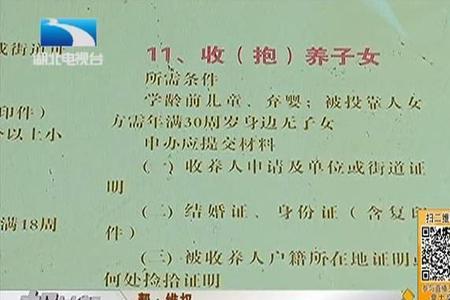 湖北电视台
或街道证
印件）
以上小
满18周
11、收（抱）养子女
所需条件
学龄前儿童、弃婴；被投靠人女
方需年满30周岁身边无子女
申办应提交材料
（一）收养人申请及单位或街道证
明
（二）结婚证、身份证（含复印
件）
（三）被收养人户籍所在地证明或
何处捡拾证明
扫二维